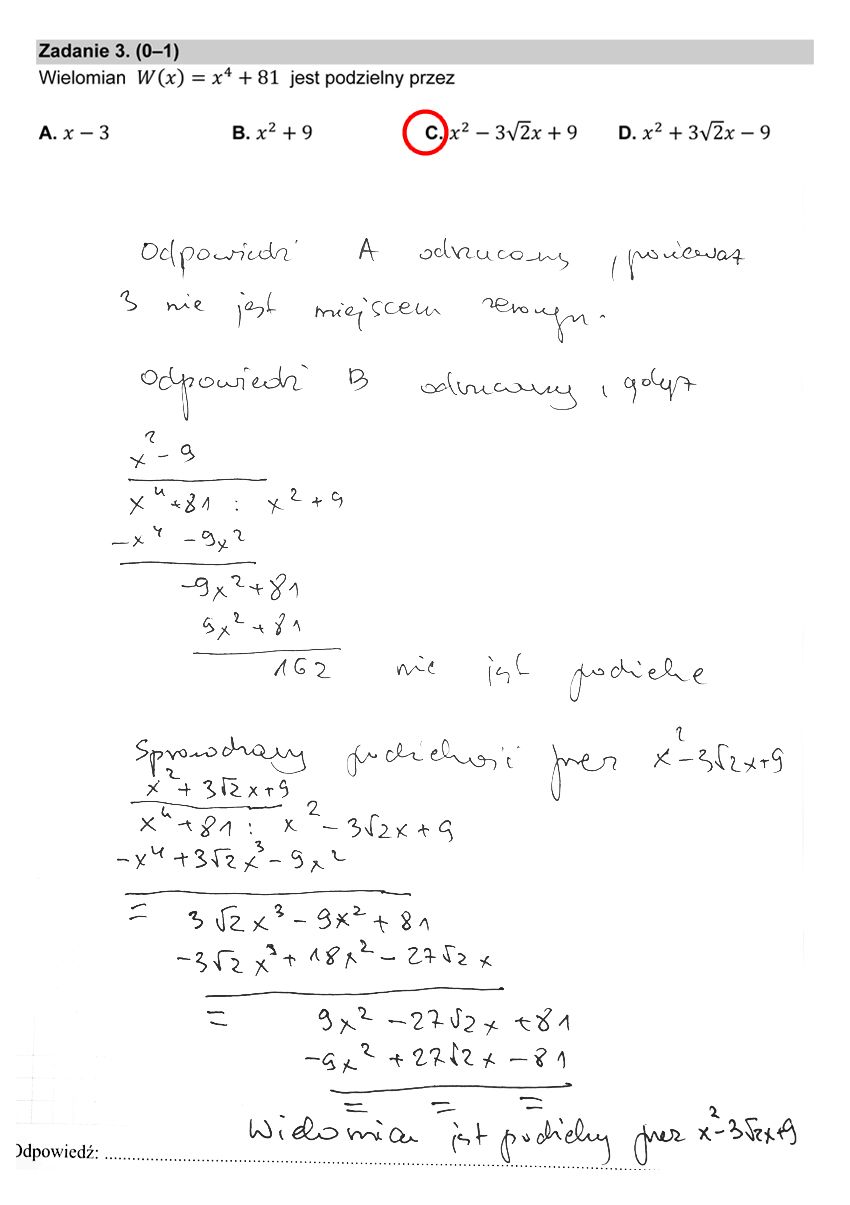 Zadanie 3. (0–1)
Wielomian W(x) = x⁴ + 81 jest podzielny przez
A. x − 3 B. x² + 9 C. x² − 3√2x + 9 D. x² + 3√2x − 9
Odpowiedź A odrzucamy, ponieważ
3 nie jest miejscem zerowym.
Odpowiedź B odrzucamy, gdyż
x² − 9
x⁴ + 81 : x² + 9
−x⁴ − 9x²
−9x² + 81
9x² + 81
162 nie jest podzielne
Sprawdzamy podzielność przez x² − 3√2x + 9
x² + 3√2x + 9
x⁴ + 81 : x² − 3√2x + 9
−x⁴ + 3√2x³ − 9x²
= 3√2x³ − 9x² + 81
−3√2x³ + 18x² − 27√2x
= 9x² − 27√2x + 81
−9x² + 27√2x − 81
= = =
Wielomian jest podzielny przez x² − 3√2x + 9
Odpowiedź: